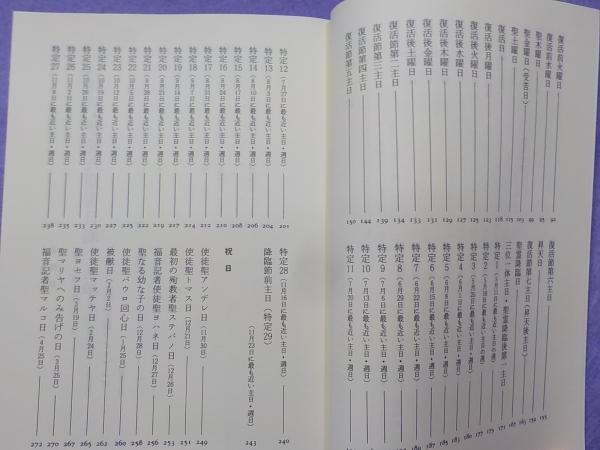 復活前水曜日
復活前木曜日
聖木曜日
聖金曜日（受苦日）
聖土曜日
復活日
復活後月曜日
復活後火曜日
復活後水曜日
復活後木曜日 129
復活後金曜日 131
復活後土曜日 133
復活節第二主日 134
復活節第三主日 139
復活節第四主日 144
復活節第五主日 150
復活節第六主日 155
昇天日
復活節第七主日（昇天後主日）
聖霊降臨日
三位一体主日・聖霊降臨後第一主日
特定1（5月11日に最も近い主日の週）
特定2（5月18日に最も近い主日の週）
特定3（5月25日に最も近い主日・週日）
特定4（6月1日に最も近い主日・週日）
特定5（6月8日に最も近い主日・週日）
特定6（6月15日に最も近い主日・週日）
特定7（6月22日に最も近い主日・週日）
特定8（6月29日に最も近い主日・週日）
特定9（7月6日に最も近い主日・週日）
特定10（7月13日に最も近い主日・週日）
特定11（7月20日に最も近い主日・週日）
特定12（7月27日に最も近い主日・週日） 201
特定13（8月3日に最も近い主日・週日） 204
特定14（8月10日に最も近い主日・週日） 206
特定15（8月17日に最も近い主日・週日） 208
特定16（8月24日に最も近い主日・週日） 210
特定17（8月31日に最も近い主日・週日） 212
特定18（9月7日に最も近い主日・週日） 215
特定19（9月14日に最も近い主日・週日） 217
特定20（9月21日に最も近い主日・週日） 219
特定21（9月28日に最も近い主日・週日） 222
特定22（10月5日に最も近い主日・週日） 225
特定23（10月12日に最も近い主日・週日） 227
特定24（10月19日に最も近い主日・週日） 230
特定25（10月26日に最も近い主日・週日） 233
特定26（11月2日に最も近い主日・週日） 235
特定27（11月9日に最も近い主日・週日） 238
特定28（11月16日に最も近い主日・週日） 240
降臨節前主日（特定29）
（11月23日に最も近い主日・週日） 243
祝日
使徒聖アンデレ日（11月30日） 249
使徒聖トマス日（12月21日） 251
最初の殉教者聖ステパノ日（12月26日） 253
福音記者使徒聖ヨハネ日（12月27日） 256
聖なる幼な子の日（12月28日） 258
使徒聖パウロ回心日（1月25日） 260
被献日（2月2日） 262
使徒聖マッテヤ日（2月24日） 265
聖ヨセフ日（3月19日） 267
聖マリヤへのみ告げの日（3月25日） 270
福音記者聖マルコ日（4月25日） 272